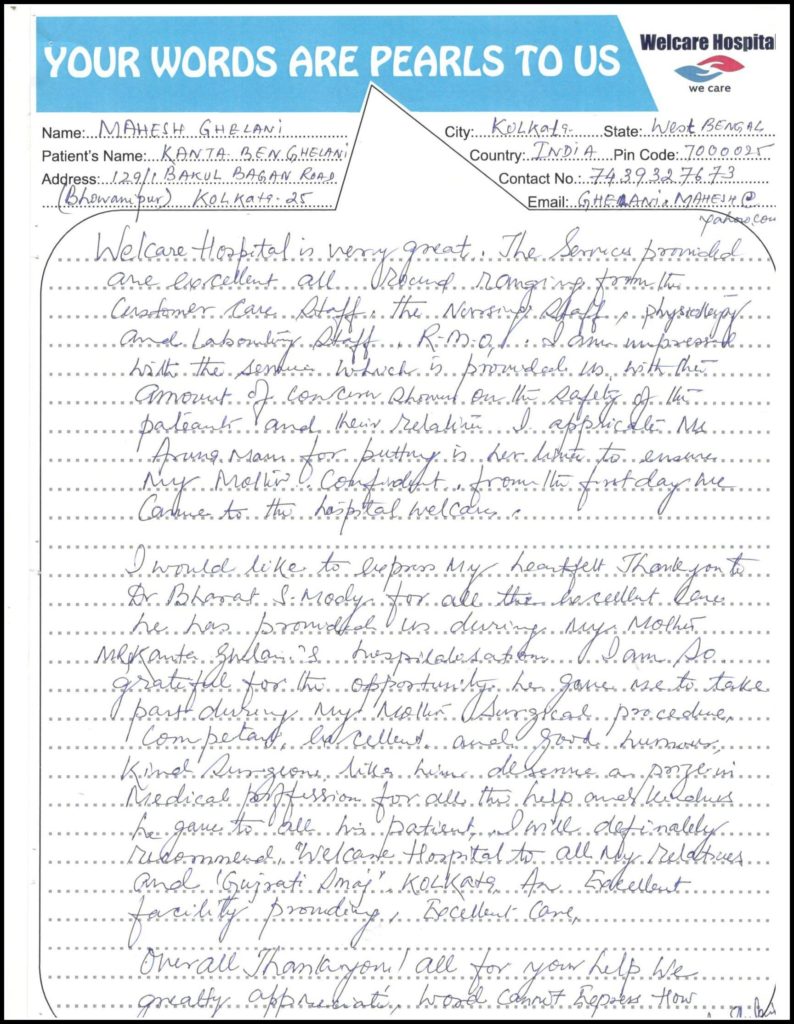 YOUR WORDS ARE PEARLS TO US
Welcare Hospital
we care
Name: MAHESH GHELANI
City: KOLKATA State: WEST BENGAL
Patient's Name: KANTA BEN GHELANI
Country: INDIA Pin Code: 7000025
Address: 129/1 BAKUL BAGAN ROAD
Contact No.: 7439327673
(Bhowanipur) KOLKATA-25
Email: GHELANI.MAHESH@
yahoo.com
Welcare Hospital is very great. The Services provided
are excellent all round ranging from the
Customer Care Staff, the Nursing Staff, physiotherapy
and Laboratory Staff, R.M.O,. I am impressed
with the service which is provided us with the
amount of concern shown on the safety of the
patients and their relative I
Aruna Mam for putting is her to ensure
My Mother Confident from the first day we
came to the hospital Welcare.
I would like to express My heartfelt Thank you to
Dr Bharat S. Mody for all the excellent care
he has provided us during My Mother
MRS Kanta Ghelani's hospitalisation. I am so
grateful for the opportunity he gave me to take
part during My Mother Surgical procedure,
Competant, excellent and good humour,
Kind Surgeone like him deserve a prize in
Medical proffession for all the help and kindness
he gave to all his patient, I will definately
recommend, "Welcare Hospital to all My relatives
and 'Gujrati Smaj' KOLKATA An Excellent
facility providing, Excellent Care,
Overall Thankyou! all for your help We
greatly appreciate, word cannot Express How